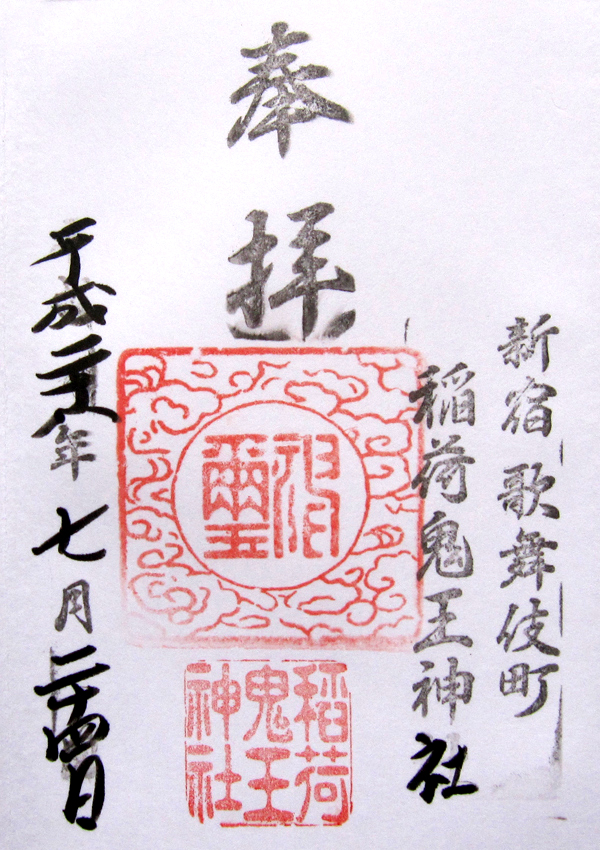 新宿 歌舞伎町
稲荷鬼王神社
奉拝
稲荷
鬼王
神社
平成二十八年七月二十四日